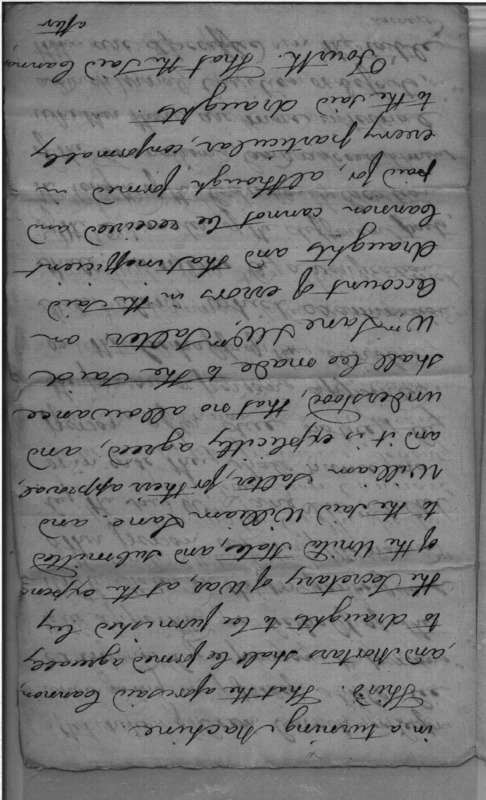 in a turning Machine
Third. That the aforesaid Cannon,
and Mortars shall be formed agreeably
to draughts to be furnished by
the Secretary of War, at the expence
of the United States, and submitted
to the said William Lane and
William Salter, for their approval,
and it is explicitly agreed, and
understood, that no allowance
shall bee made to the said
Wm Lane & Wm Salter on
account of errors in the said
draughts and that inefficient
Cannon cannot be received and
paid for, although formed in
every particular, conformably
to the said draughts.
Fourth. That the said Cannon
after